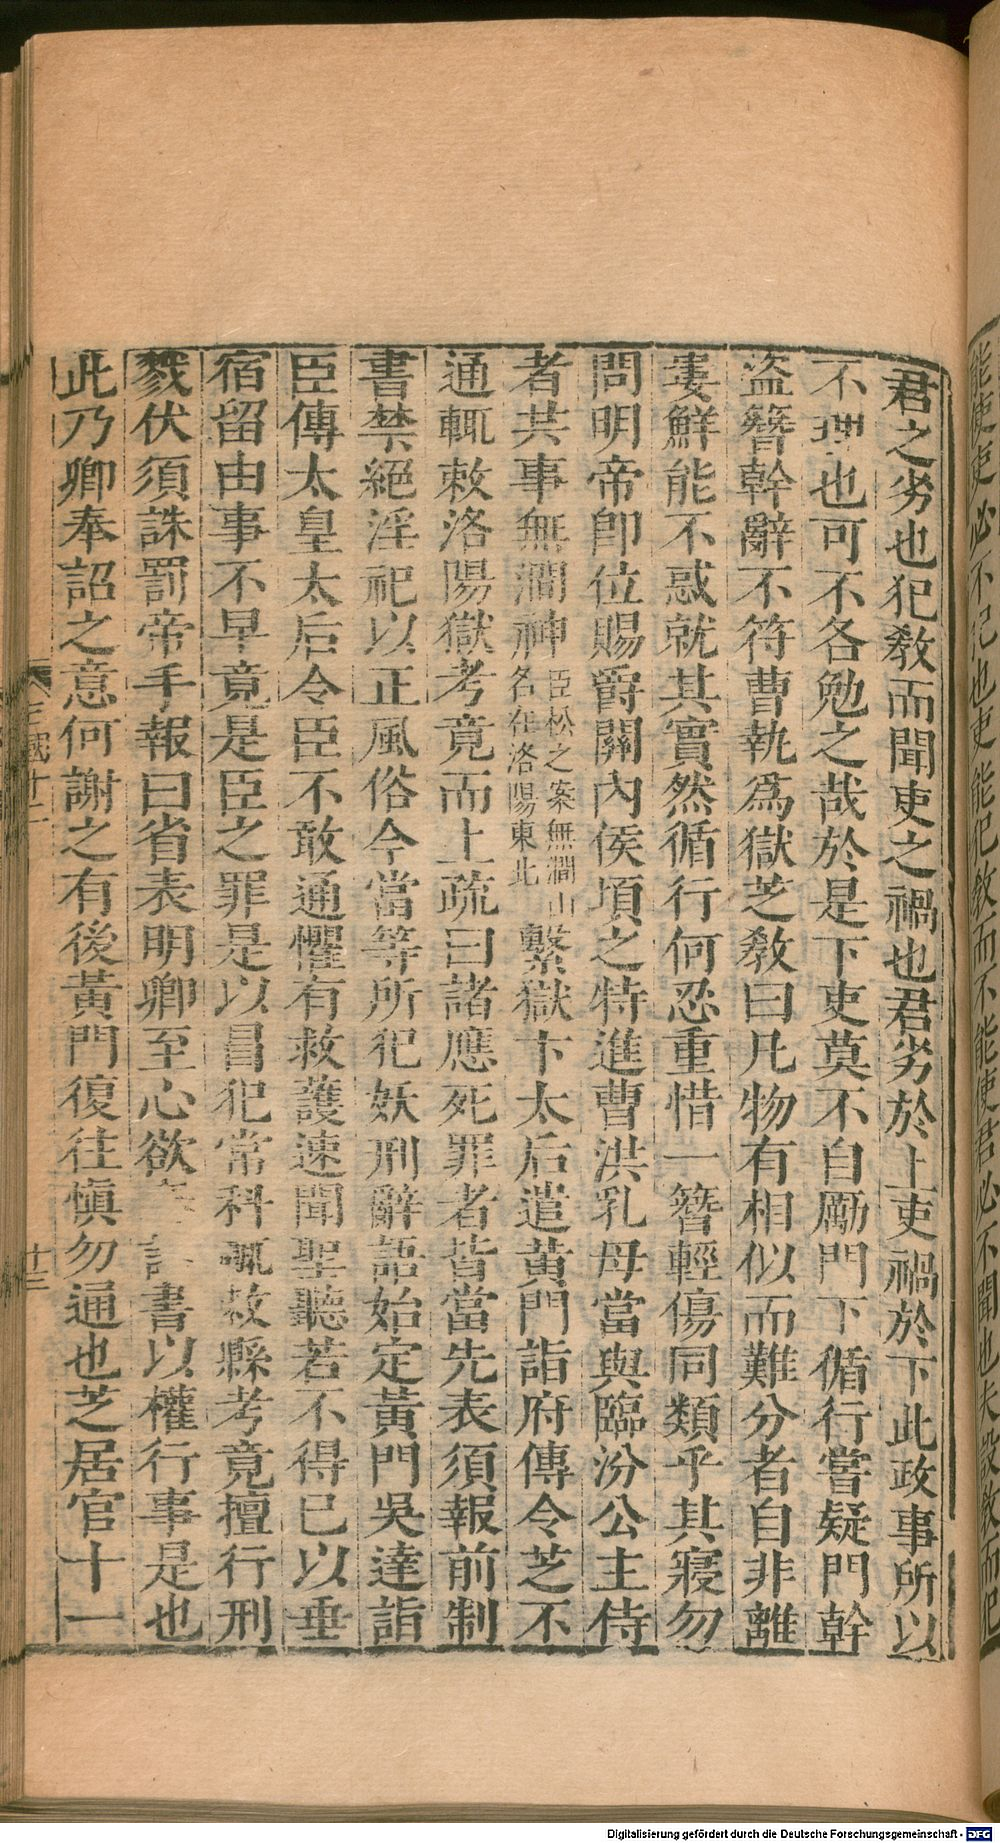 能使吏必不犯也吏能犯教而不能使君必不聞也夫設教而犯
君之劣也犯教而聞吏之禍也君劣於上吏禍於下此政事所以
不理也可不各勉之哉於是下吏莫不自勵門下循行嘗疑門幹
盜簪幹辭不符曹執爲獄芝教曰凡物有相似而難分者自非離
婁鮮能不惑就其實然循行何忍重惜一簪輕傷同類乎其寢勿
問明帝卽位賜爵關內侯頃之特進曹洪乳母當與臨汾公主侍
者共事無澗神臣松之案無澗山名在洛陽東北繫獄卞太后遣黃門詣府傳令芝不
通輒敕洛陽獄考竟而上疏曰諸應死罪者皆當先表須報前制
書禁絕淫祀以正風俗今當等所犯妖刑辭語始定黃門吳達詣
臣傳太皇太后令臣不敢通懼有救護速聞聖聽若不得已以垂
宿留由事不早竟是臣之罪是以冒犯常科輒敕縣考竟擅行刑
戮伏須誅罰帝手報曰省表明卿至心欲書以權行事是也
此乃卿奉詔之意何謝之有後黃門復往愼勿通也芝居官十一
三國十二
十三
Digitalisierung gefördert durch die Deutsche Forschungsgemeinschaft - DFG